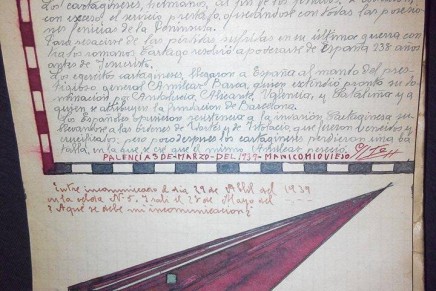 Los cartagineses, hermanos, al fin de los fenicios, se cobraron
con exceso, el servicio prestado, quedándose con todas las posesio-
nes fenicias de la Península.
Para resarcirse de las pérdidas sufridas en su última guerra con-
tra los romanos Cartago resolvió apoderarse de España 238 años
antes de Jesucrito.
Los ejercitos cartagineses llegaron a España al mando del pres-
tigioso general Amilcar Barca, quien extendió pronto su do-
minación por Andalucia, Alicante, Valencia, y Cataluña y a
quien se atribuye la fundición de Barcelona.
Los Españoles opusieron resistencia a la invasión Cartaginesa su-
blevandose a las ordenes de y de Istolacio, que fueron vencidos y
crucificados, pero poco despues los cartagineses perdieron una ba-
talla, en la que se cree que el mismo Amilcar pereció.
PALENCIA 5-DE-MARZO-DEL-1939-MANICOMIO VIEJO
Entre incomunicado el dia 29 de Abl del 1939
en la celda N-5. Salí el 28 de Mayo del ----
¿A qué se debe mi incomunicacion?